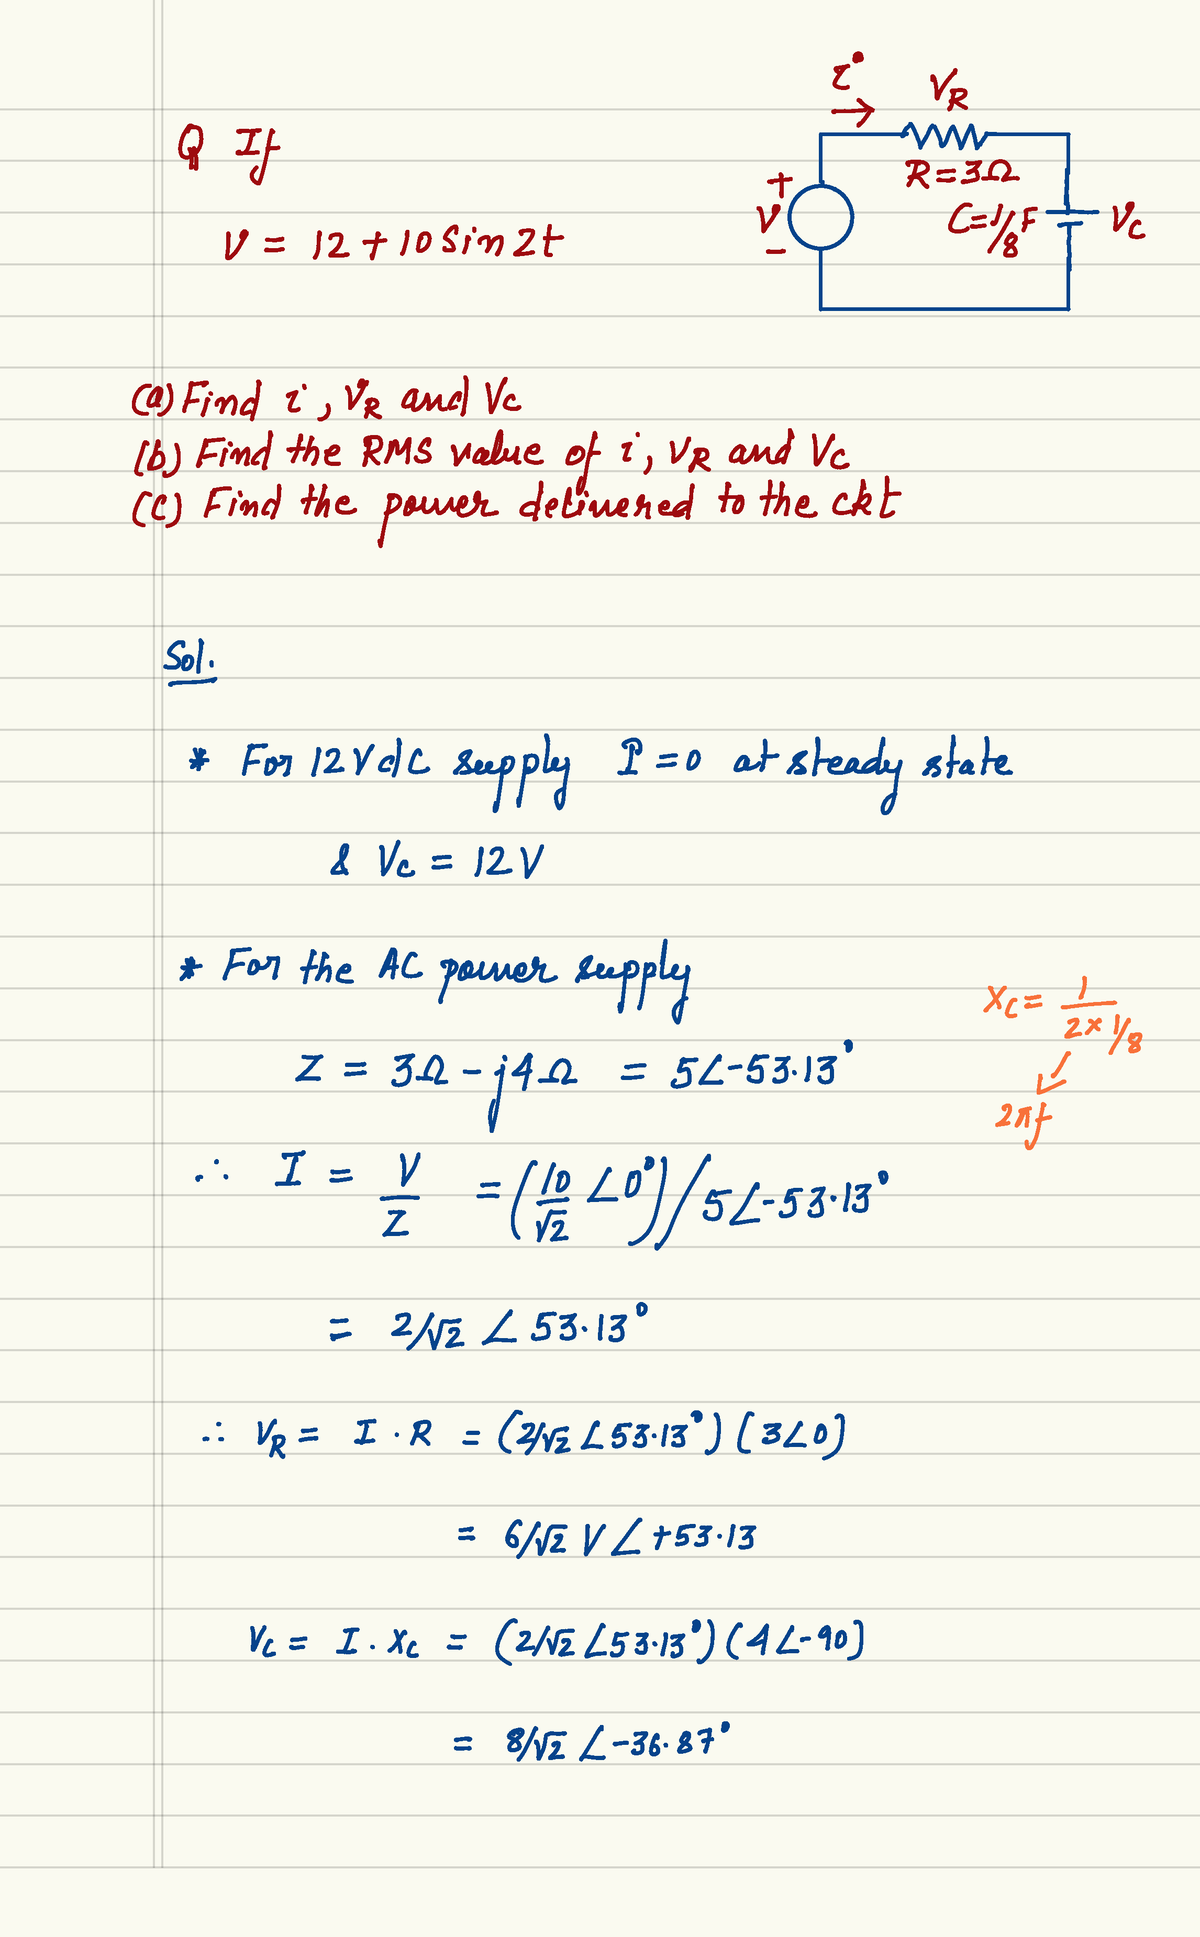 Q If
V = 12 + 10 Sin 2t
i
VR
R = 3Ω
+
V
-
C = 1/8 F
Vc
(a) Find i, VR and Vc
(b) Find the RMS value of i, VR and Vc
(c) Find the power delivered to the ckt
Sol.
* For 12 V dC supply I = 0 at steady state
& Vc = 12 V
* For the AC power supply
Xc = 1 / (2 × 1/8)
2πf
Z = 3Ω - j4Ω = 5∠-53.13°
∴ I = V/Z = (10/√2 ∠0°) / 5∠-53.13°
= 2/√2 ∠ 53.13°
∴ VR = I . R = (2/√2 ∠53.13°) (3∠0)
= 6/√2 V ∠+53.13
Vc = I . Xc = (2/√2 ∠53.13°) (4∠-90)
= 8/√2 ∠-36.87°